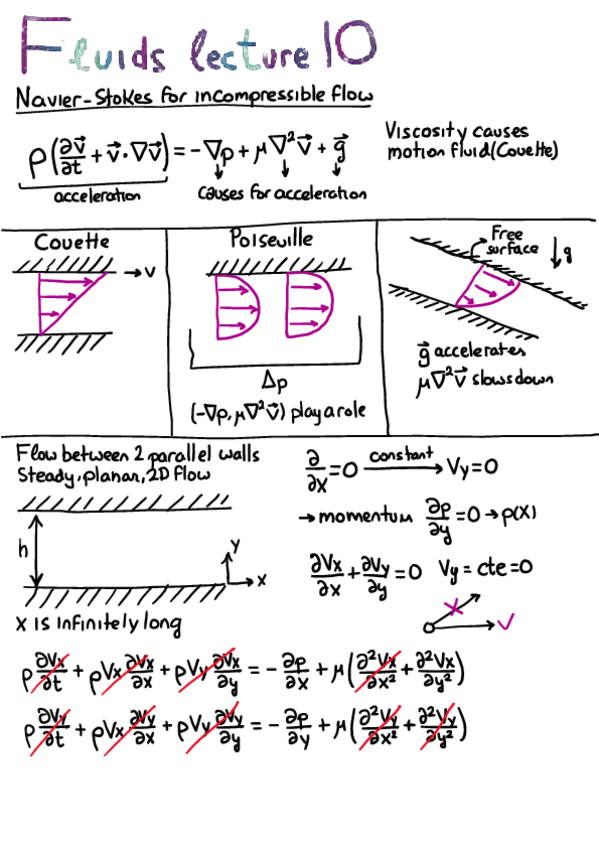 Fluids lecture 10
Navier-Stokes for incompressible flow
ρ(∂v⃗/∂t + v⃗·∇v⃗) = -∇p + μ∇²v⃗ + g⃗
acceleration
causes for acceleration
Viscosity causes
motion fluid (Couette)
Couette
v
Poiseuille
Δp
(-∇p, μ∇²v⃗) play a role
Free
surface
g
g⃗ accelerates
μ∇²v⃗ slows down
Flow between 2 parallel walls
Steady, planar, 2D flow
h
y
x
x is infinitely long
∂/∂x = 0 constant → Vy = 0
→ momentum ∂p/∂y = 0 → p(x)
∂Vx/∂x + ∂Vy/∂y = 0 Vy = cte = 0
v
ρ ∂Vx/∂t + ρVx ∂Vx/∂x + ρVy ∂Vx/∂y = -∂p/∂x + μ(∂²Vx/∂x² + ∂²Vx/∂y²)
ρ ∂Vy/∂t + ρVx ∂Vy/∂x + ρVy ∂Vy/∂y = -∂p/∂y + μ(∂²Vy/∂x² + ∂²Vy/∂y²)